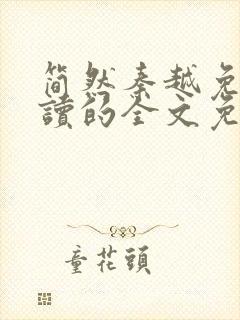 简然秦越免
讀的全文免
童花頭